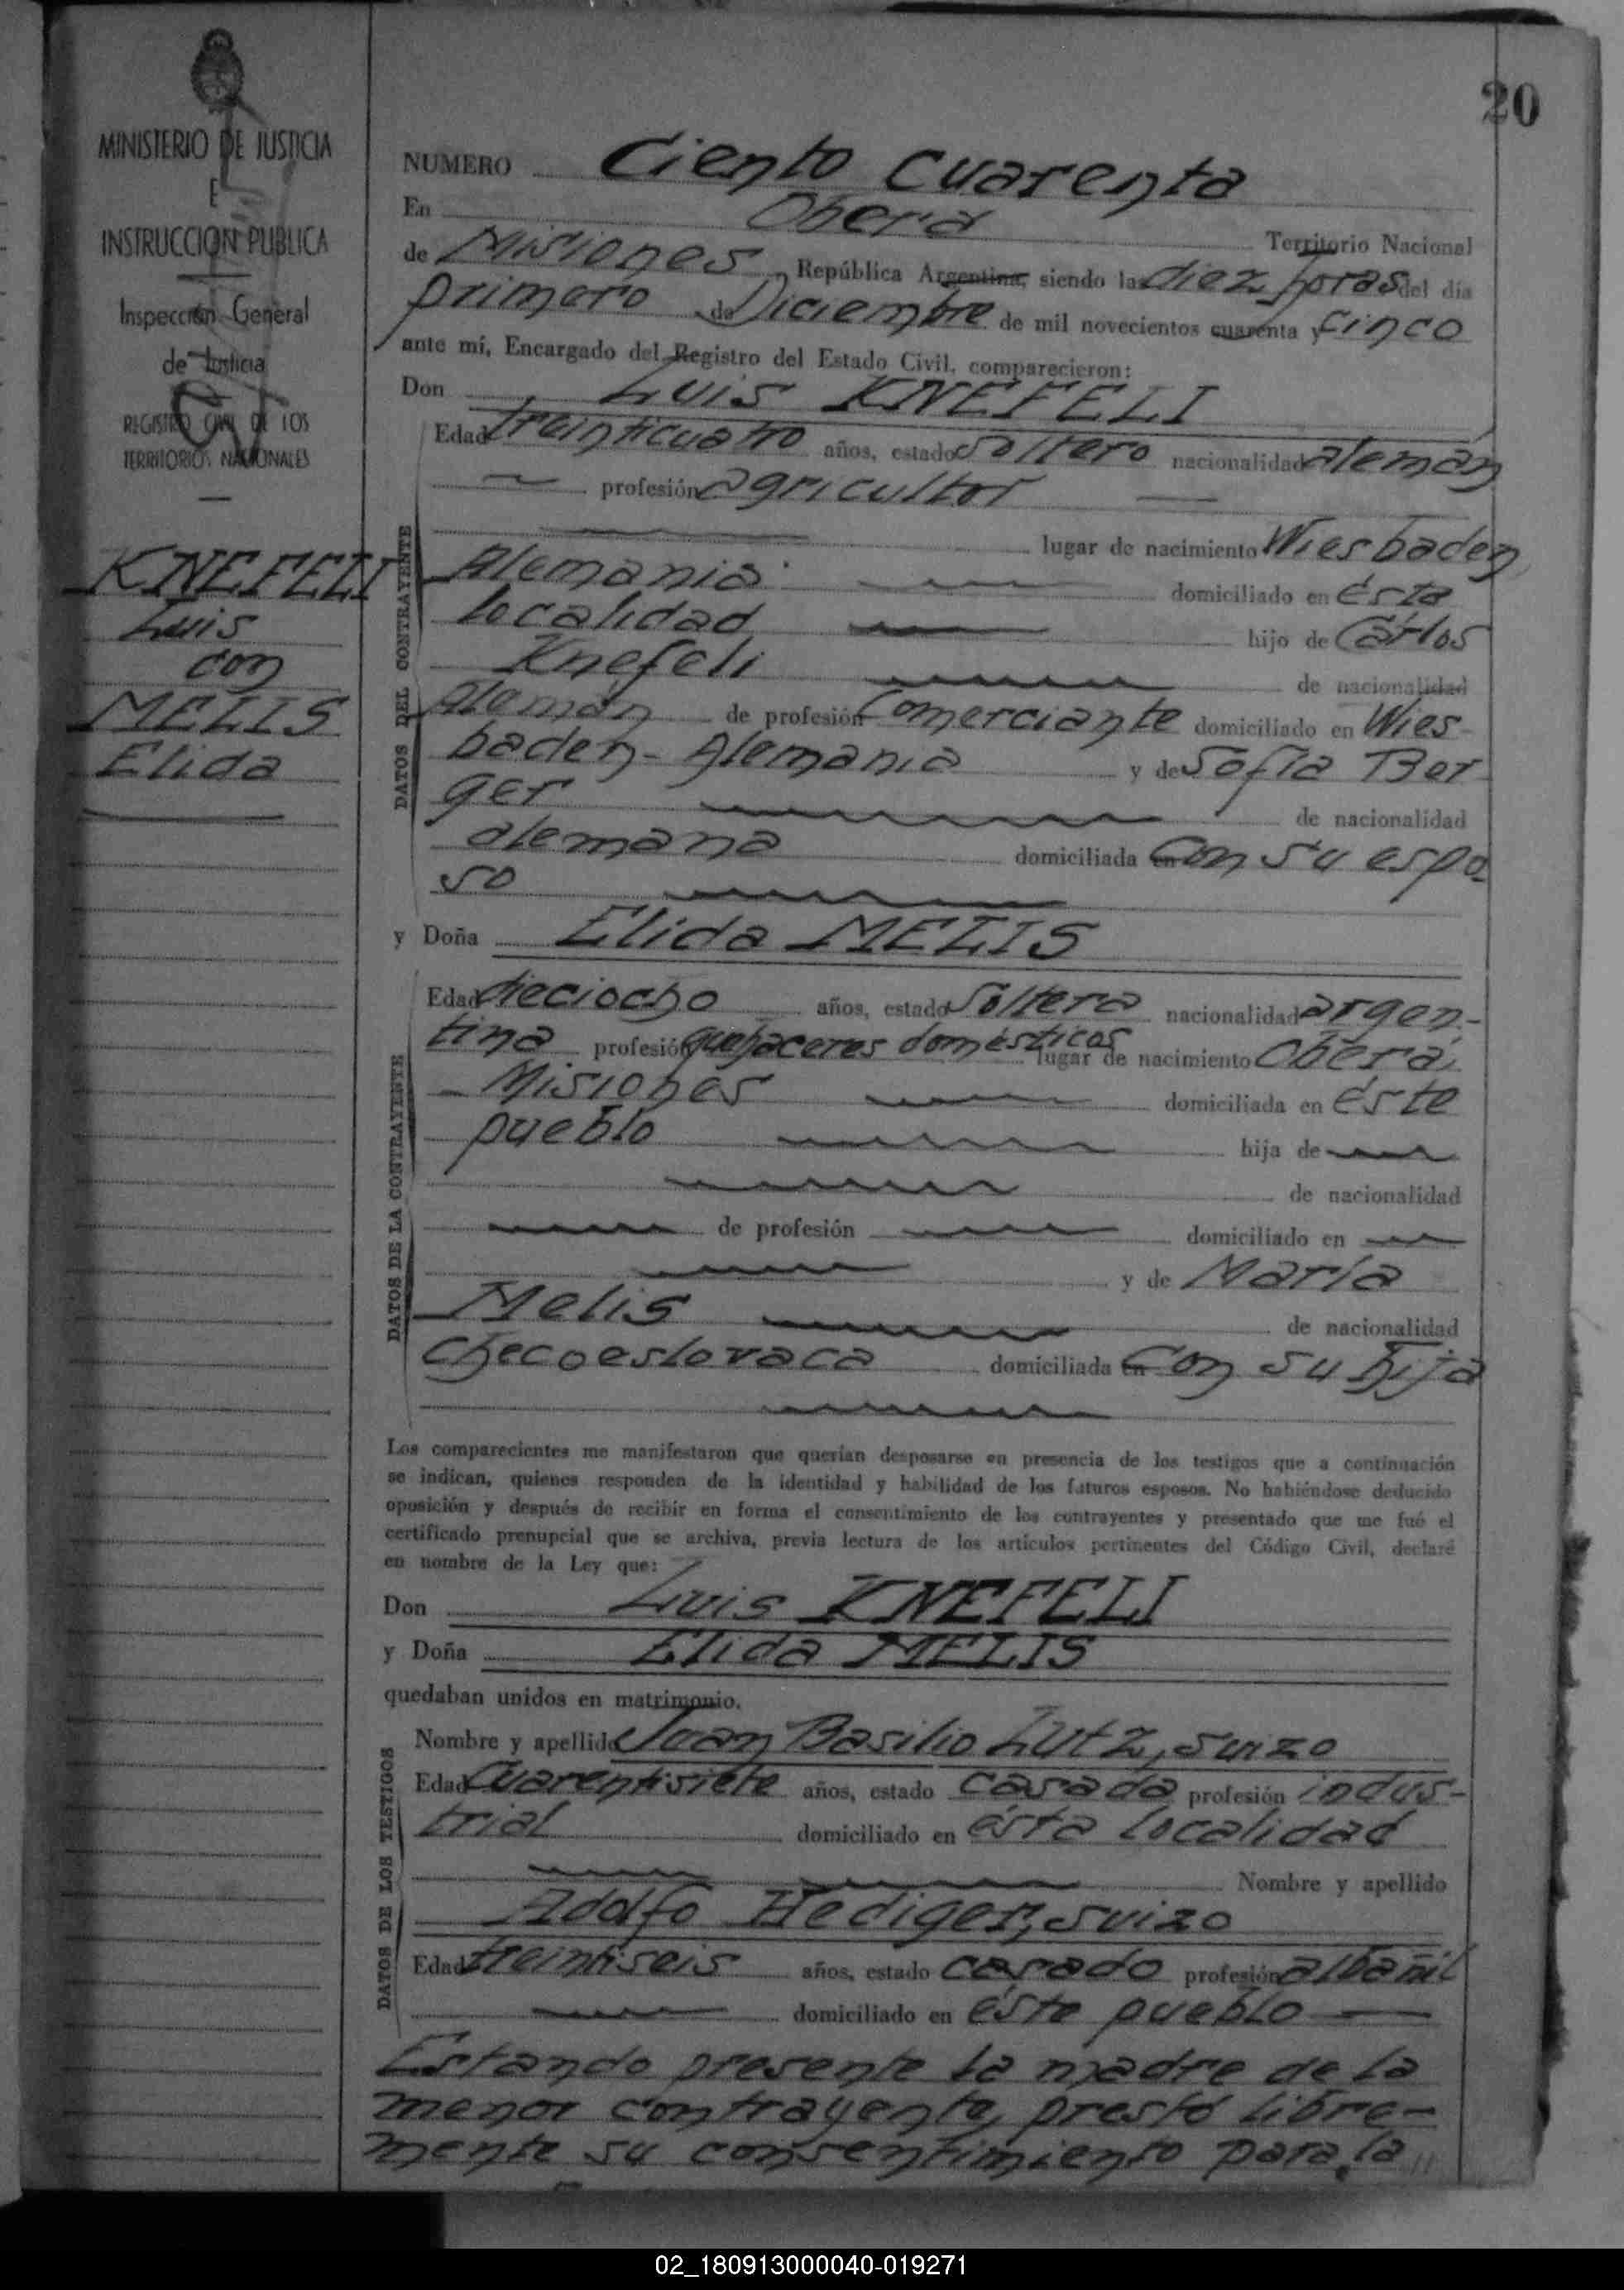 20
MINISTERIO DE JUSTICIA
E
INSTRUCCION PUBLICA
Inspección General
de Justicia
REGISTRO CIVIL DE LOS
TERRITORIOS NACIONALES
KNEFELI
Luis
con
MELIS
Elida
NUMERO Ciento cuarenta
En Oberá Territorio Nacional
de Misiones, República Argentina, siendo las diez horas del día
primero de Diciembre de mil novecientos cuarenta y cinco
ante mí, Encargado del Registro del Estado Civil, comparecieron:
Don Luis KNEFELI
DATOS DEL CONTRAYENTE
Edad treinticuatro años, estado soltero nacionalidad alemán
profesión agricultor
lugar de nacimiento Wiesbaden
Alemania domiciliado en ésta
localidad hijo de Carlos
Knefeli de nacionalidad
Alemán de profesión Comerciante domiciliado en Wies-
baden - Alemania y de Sofía Ber
ger de nacionalidad
alemana domiciliada en con su espo-
so
y Doña Elida MELIS
DATOS DE LA CONTRAYENTE
Edad dieciocho años, estado soltera nacionalidad argen-
tina profesión quehaceres domésticos lugar de nacimiento Oberá,
Misiones domiciliada en éste
pueblo hija de
de nacionalidad
de profesión domiciliado en
y de María
Melis de nacionalidad
checoeslovaca domiciliada en con su hija
Los comparecientes me manifestaron que querían desposarse en presencia de los testigos que a continuación
se indican, quienes responden de la identidad y habilidad de los futuros esposos. No habiéndose deducido
oposición y después de recibir en forma el consentimiento de los contrayentes y presentado que me fué el
certificado prenupcial que se archiva, previa lectura de los artículos pertinentes del Código Civil, declaré
en nombre de la Ley que:
Don Luis KNEFELI
y Doña Elida MELIS
quedaban unidos en matrimonio.
DATOS DE LOS TESTIGOS
Nombre y apellido Juan Basilio Lutz, suizo
Edad cuarentisiete años, estado casado profesión indus-
trial domiciliado en ésta localidad
Nombre y apellido
Adolfo Hediger, suizo
Edad treintiseis años, estado casado profesión albañil
domiciliado en éste pueblo
Estando presente la madre de la
menor contrayente, prestó libre-
mente su consentimiento para la
02_180913000040-019271